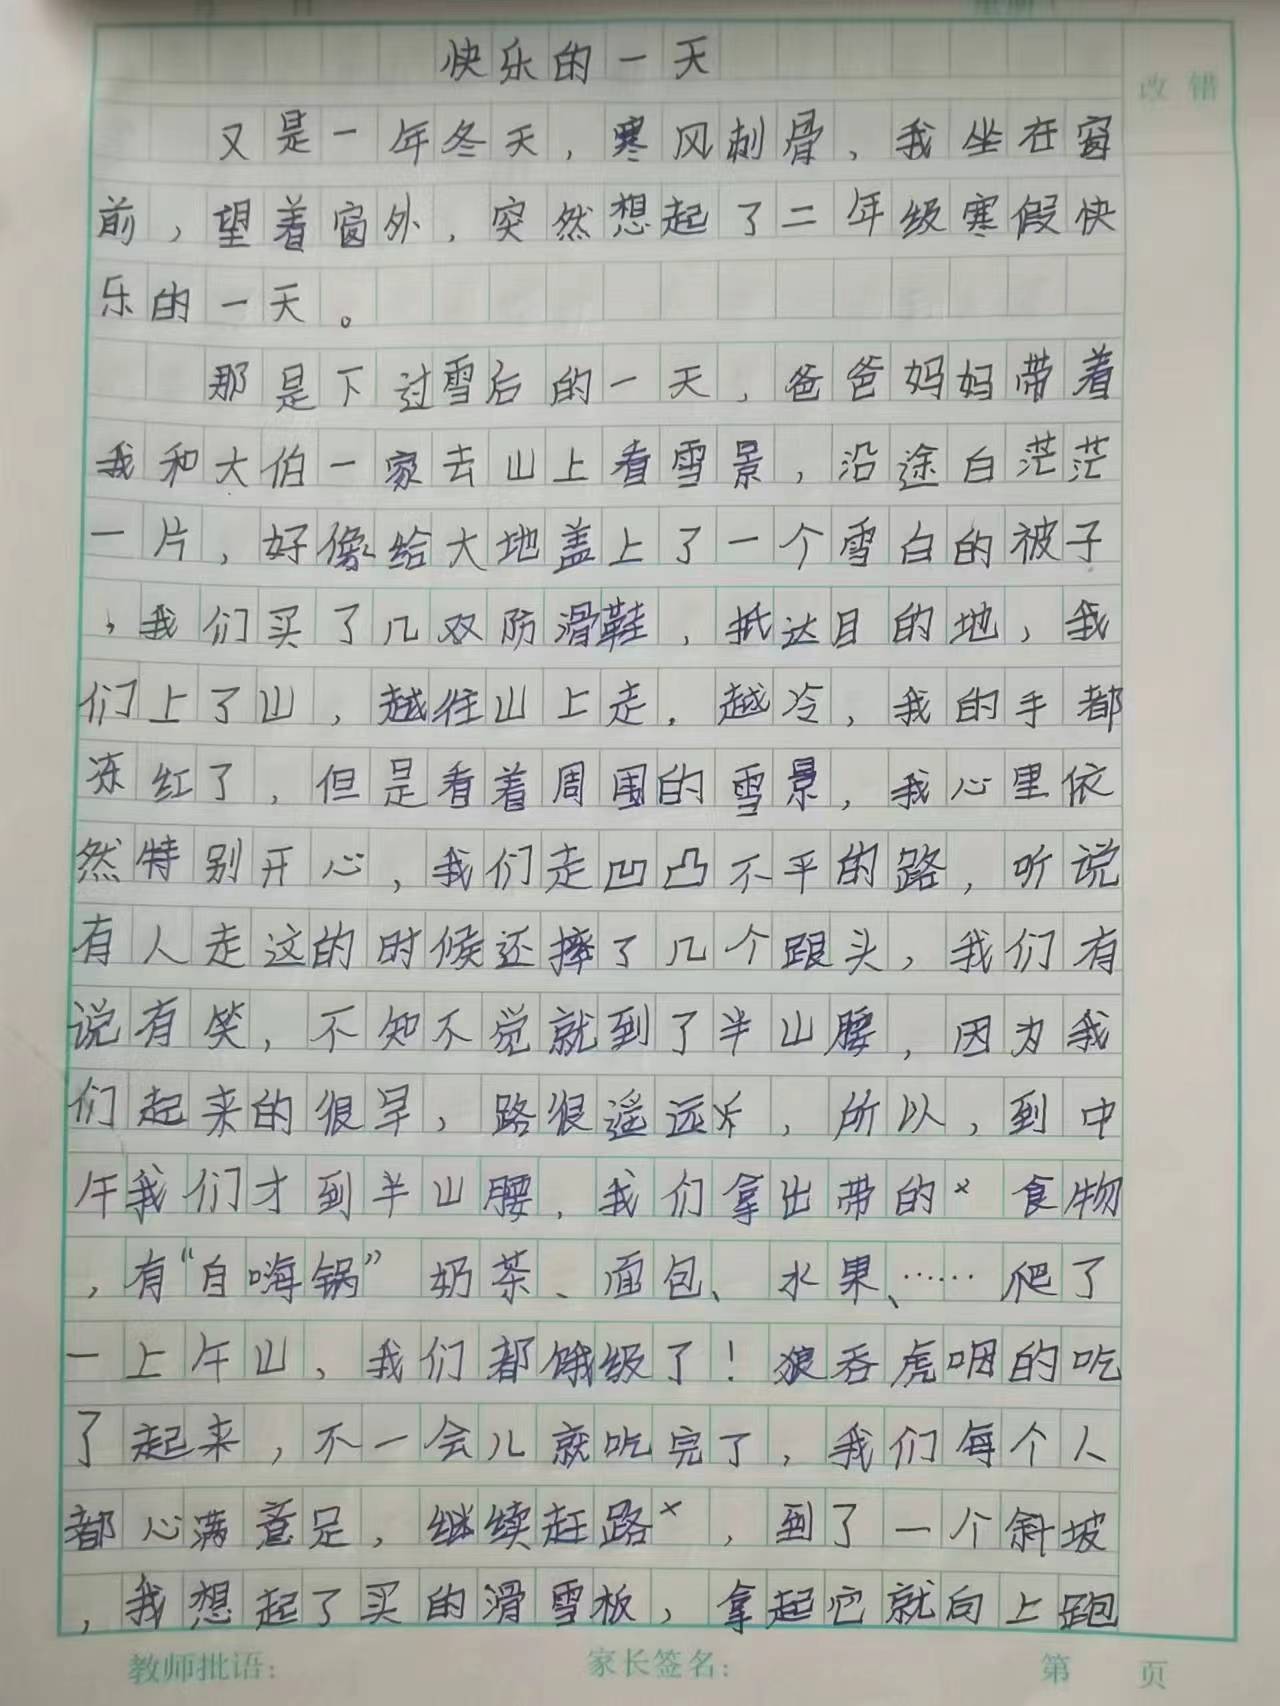 改错
快乐的一天
又是一年冬天，寒风刺骨，我坐在窗
前，望着窗外，突然想起了二年级寒假快
乐的一天。
那是下过雪后的一天，爸爸妈妈带着
我和大伯一家去山上看雪景，沿途白茫茫
一片，好像给大地盖上了一个雪白的被子
，我们买了几双防滑鞋，抵达目的地，我
们上了山，越往山上走，越冷，我的手都
冻红了，但是看着周围的雪景，我心里依
然特别开心，我们走凹凸不平的路，听说
有人走这的时候还摔了几个跟头，我们有
说有笑，不知不觉就到了半山腰，因为我
们起来的很早，路很遥远，所以，到中
午我们才到半山腰，我们拿出带的食物
，有“自嗨锅”奶茶、面包、水果、……爬了
一上午山，我们都饿级了！狼吞虎咽的吃
了起来，不一会儿就吃完了，我们每个人
都心满意足，继续赶路，到了一个斜坡
，我想起了买的滑雪板，拿起它就向上跑
教师批语： 家长签名： 第 页